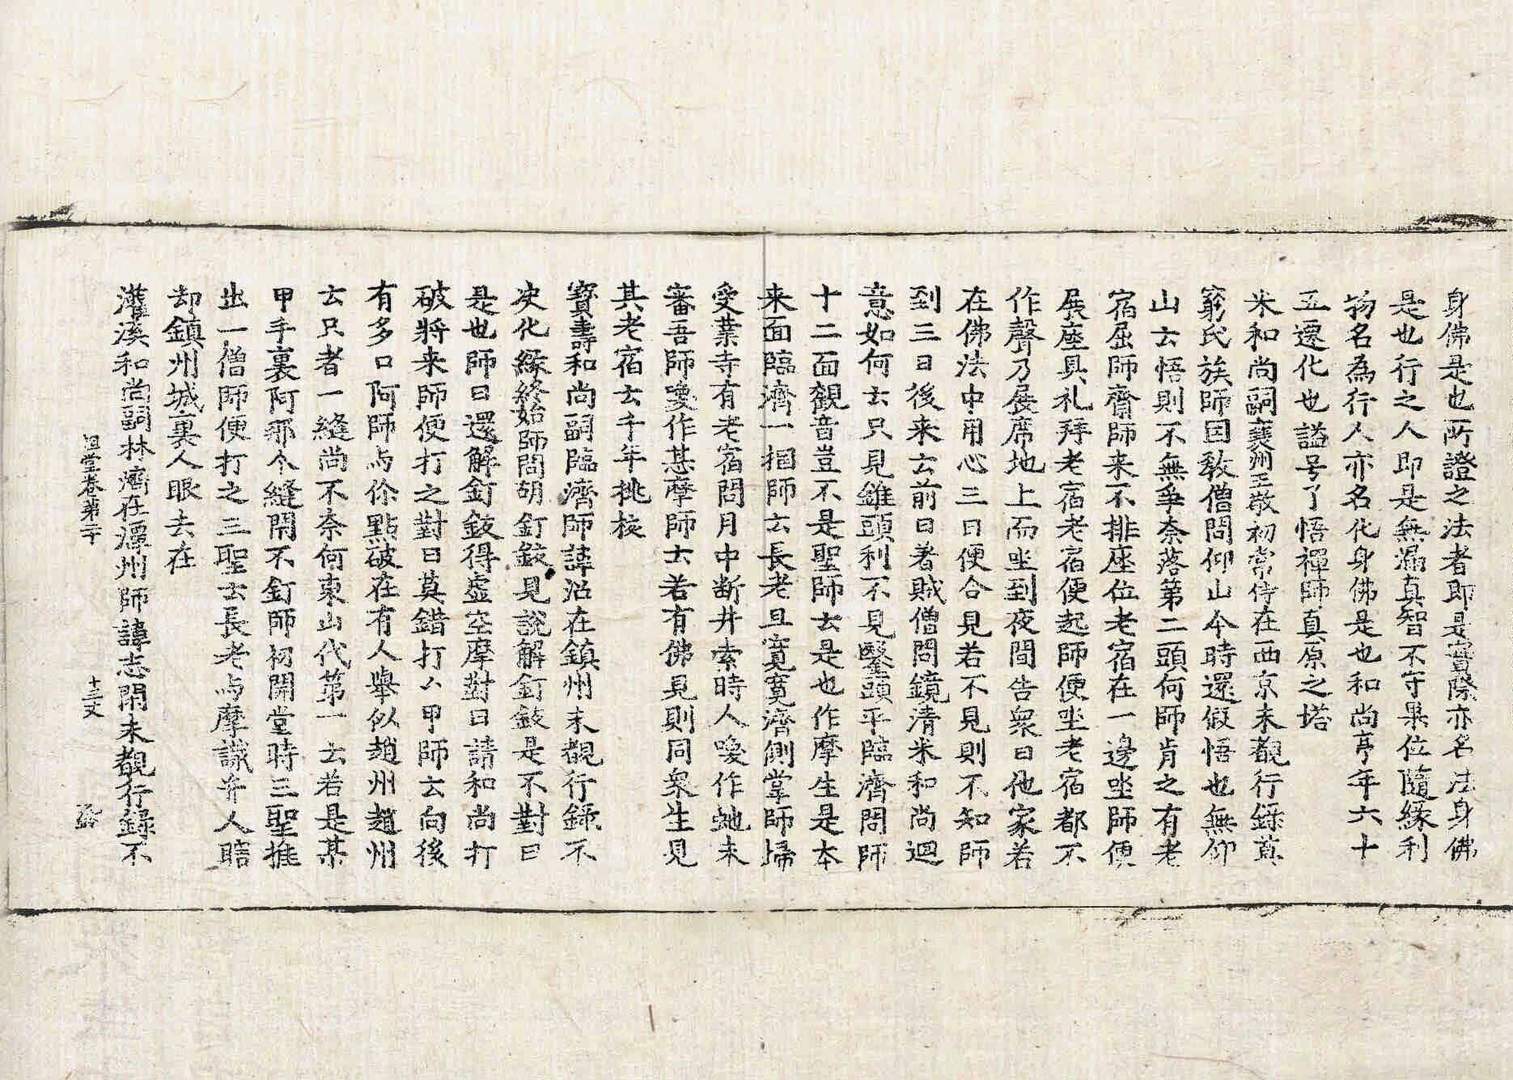 身佛是也所證之法者即是實際亦名法身佛
是也行之人即是無漏真智不守果位隨緣利
物名為行人亦名化身佛是也和尚享年六十
五遷化也謚号了悟禪師真原之塔
米和尚嗣襄州王敬初常侍在西京未覩行錄莫
窮氏族師因教僧問仰山今時還假悟也無仰
山云悟則不無爭奈落第二頭何師肯之有老
宿屈師齋師来不排座位老宿在一邊坐師便
展座具礼拜老宿老宿便起師便坐老宿都不
作聲乃展席地上而坐到夜間告衆曰他家若
在佛法中用心三日便合見若不見則不知師
到三日後来云前日著賊僧問鏡清米和尚迴
意如何云只見錐頭利不見鑿頭平臨濟問師
十二面觀音豈不是聖師云是也作摩生是本
来面臨濟一摑師云長老且寬寬濟側掌師掃
受葉寺有老宿問月中断井索時人喚作虵未
審吾師喚作甚摩師云若有佛見則同衆生見
其老宿云千年桃核
寶壽和尚嗣臨濟師諱沼在鎮州未覩行錄不
决化緣終始師問胡釘鉸見說解釘鉸是不對曰
是也師曰還解釘鉸得虛空摩對曰請和尚打
破將来師便打之對曰莫錯打厶甲師云向後
有多口阿師与你點破在有人舉似趙州趙州
云只者一縫尚不奈何東山代第一云若是某
甲手裏阿那个縫閑不釘師初開堂時三聖推
出一僧師便打之三聖云長老与摩識弁人瞎
却鎮州城裏人眼去在
灌溪和尚嗣林濟在潭州師諱志閑未覩行錄不
祖堂卷第二十 十三丈